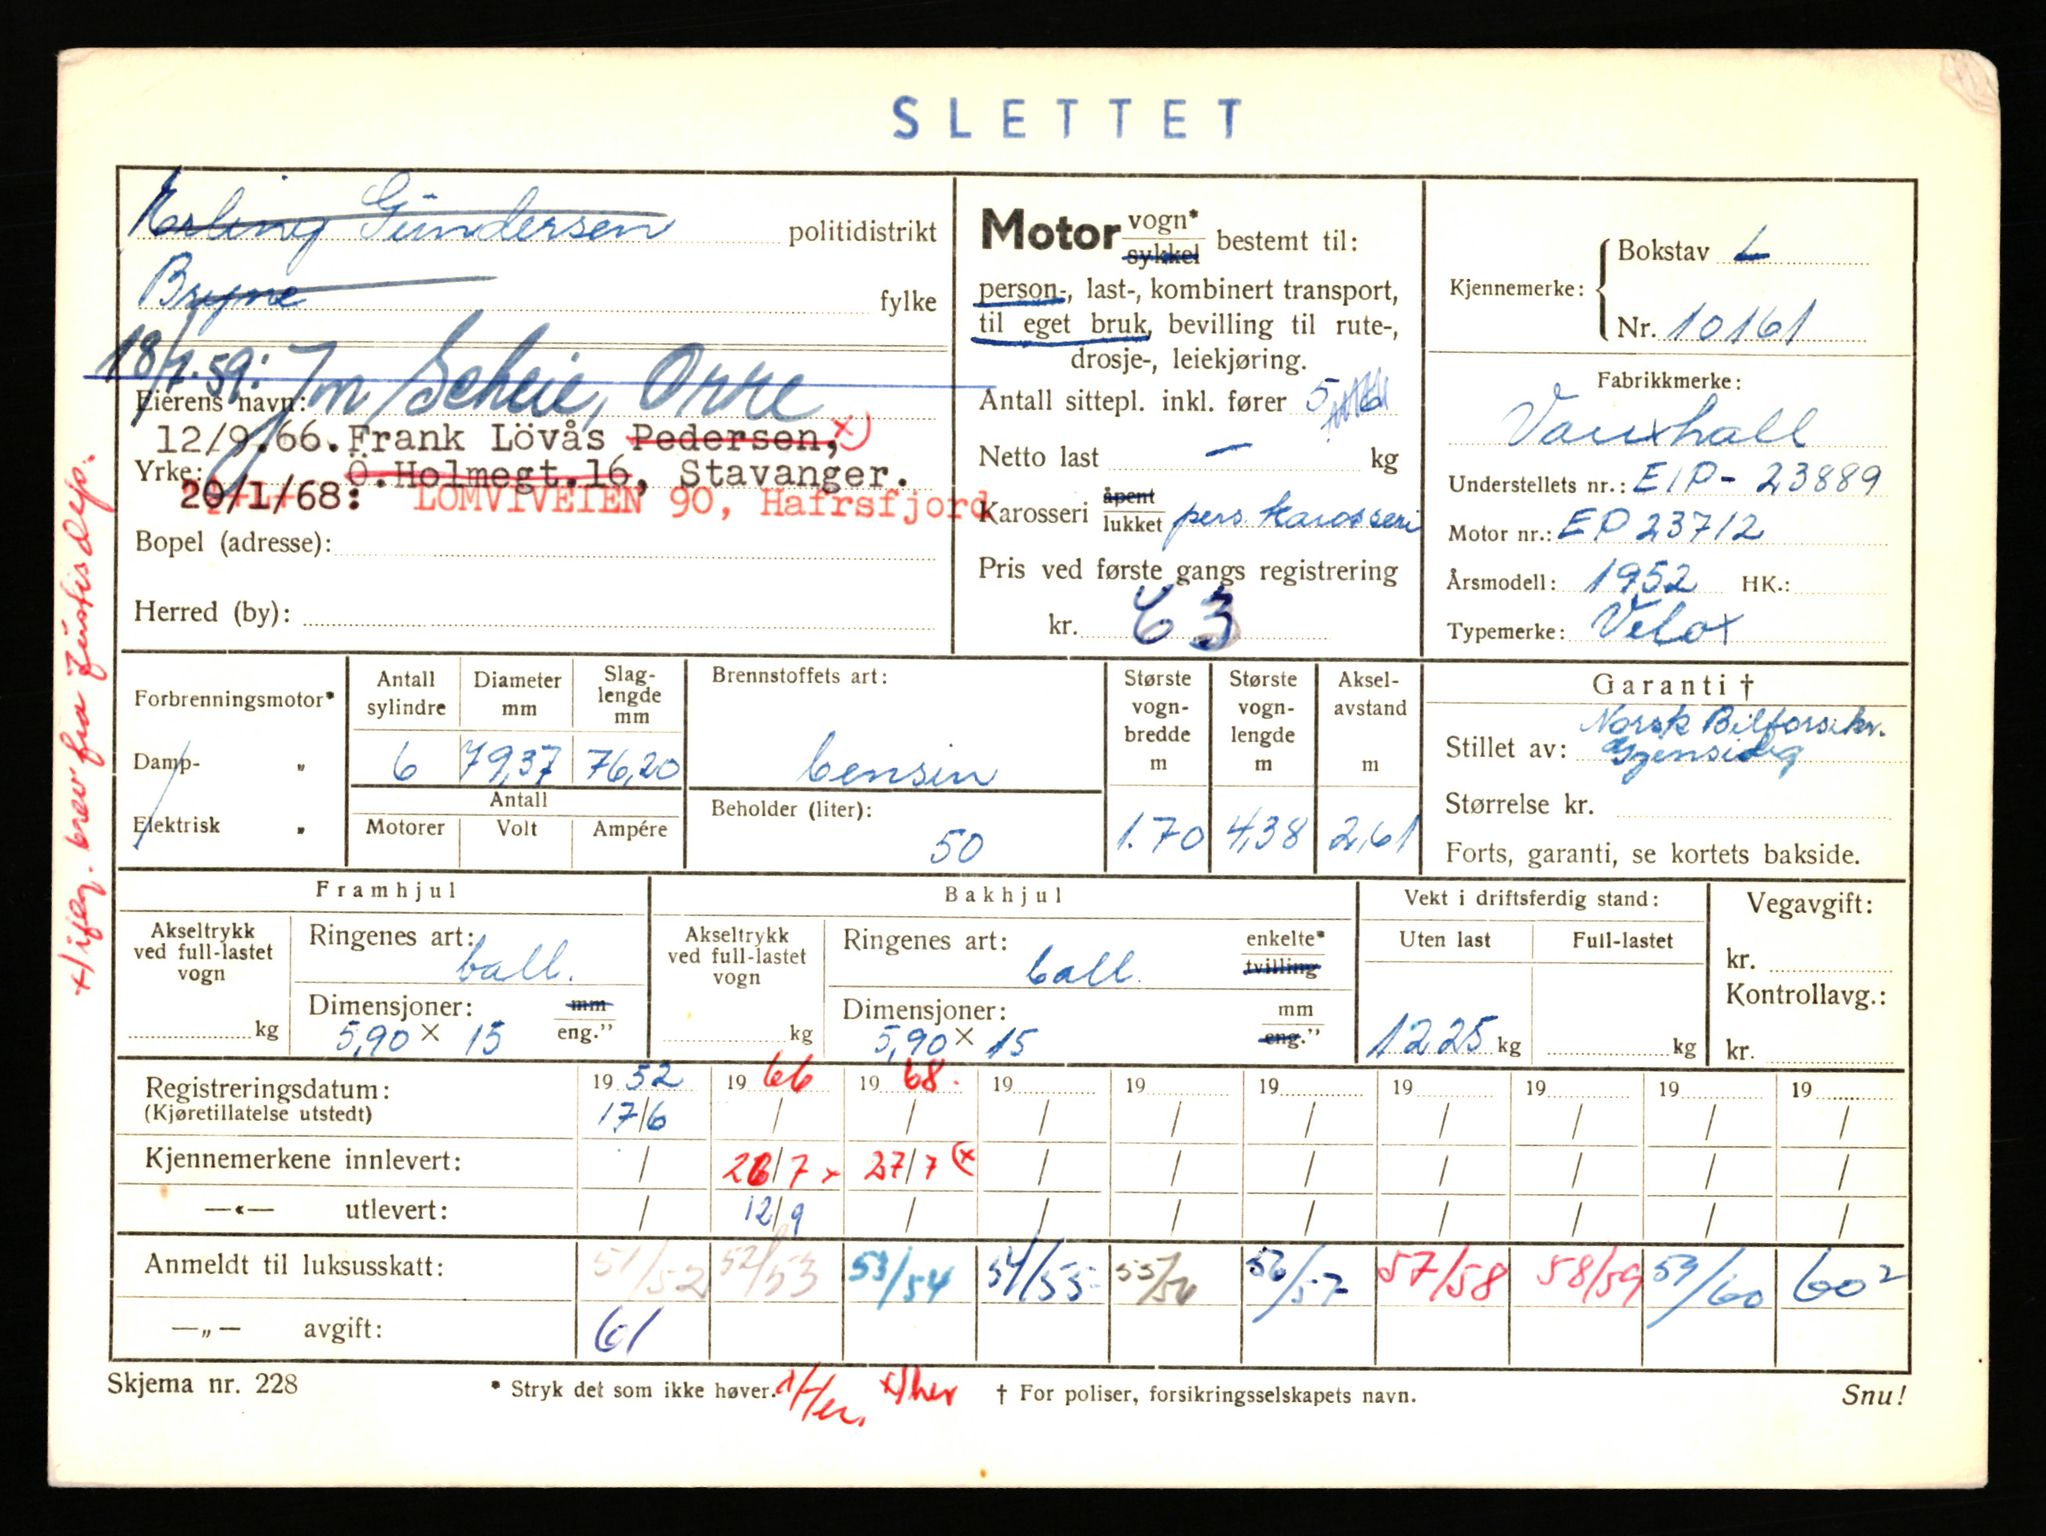 SLETTET
Erling Gundersen politidistrikt
Bryne fylke
18/7.59: Jn Scheie, Orre
Eierens navn:
12/9.66. Frank Lövås Pedersen, x)
Yrke: Ö.Holmegt.16, Stavanger.
20/1/68: LOMVIVEIEN 90, Hafrsfjord
Bopel (adresse):
Herred (by):
x) iføg. brev fra Justisdep.
Motor vogn* sykkel bestemt til:
person-, last-, kombinert transport,
til eget bruk, bevilling til rute-,
drosje-, leiekjøring.
Antall sittepl. inkl. fører 5
Netto last — kg
Karosseri åpent lukket pers karosseri
Pris ved første gangs registrering
kr. 63
Kjennemerke: Bokstav L
Nr. 10161
Fabrikkmerke:
Vauxhall
Understellets nr.: EIP- 23889
Motor nr.: EP 23712
Årsmodell: 1952 HK.:
Typemerke: Velox
Forbrenningsmotor*
Damp- „
Elektrisk „
Antall sylindre Diameter mm Slag-lengde mm
6 79,37 76,20
Antall
Motorer Volt Ampére
Brennstoffets art:
bensin
Beholder (liter):
50
Største vogn-bredde m Største vogn-lengde m Aksel-avstand m
1.70 4,38 2,61
Garanti †
Stillet av: Norsk Bilforsikr.
Gjensidig
Størrelse kr.
Forts, garanti, se kortets bakside.
Framhjul
Akseltrykk ved full-lastet vogn
kg
Ringenes art: ball.
Dimensjoner: mm
5,90 x 15 eng.”
Bakhjul
Akseltrykk ved full-lastet vogn
kg
Ringenes art: ball. enkelte* tvilling
Dimensjoner: mm
5,90 x 15 eng.”
Vekt i driftsferdig stand:
Uten last Full-lastet
1225 kg kg
Vegavgift:
kr.
Kontrollavg.:
kr.
Registreringsdatum: 19 52 19 66 19 68. 19 19 19 19 19 19 19
(Kjøretillatelse utstedt) 17/6 / / / / / / / / /
Kjennemerkene innlevert: / 26/7 x 27/7 (x / / / / / / /
—«— utlevert: / 12/9 / / / / / / / /
Anmeldt til luksusskatt: 51/52 52/53 53/54 54/55 55/56 56/57 57/58 58/59 59/60 60²
—„— avgift: 61
Skjema nr. 228 * Stryk det som ikke høver. x/her † For poliser, forsikringsselskapets navn. Snu!